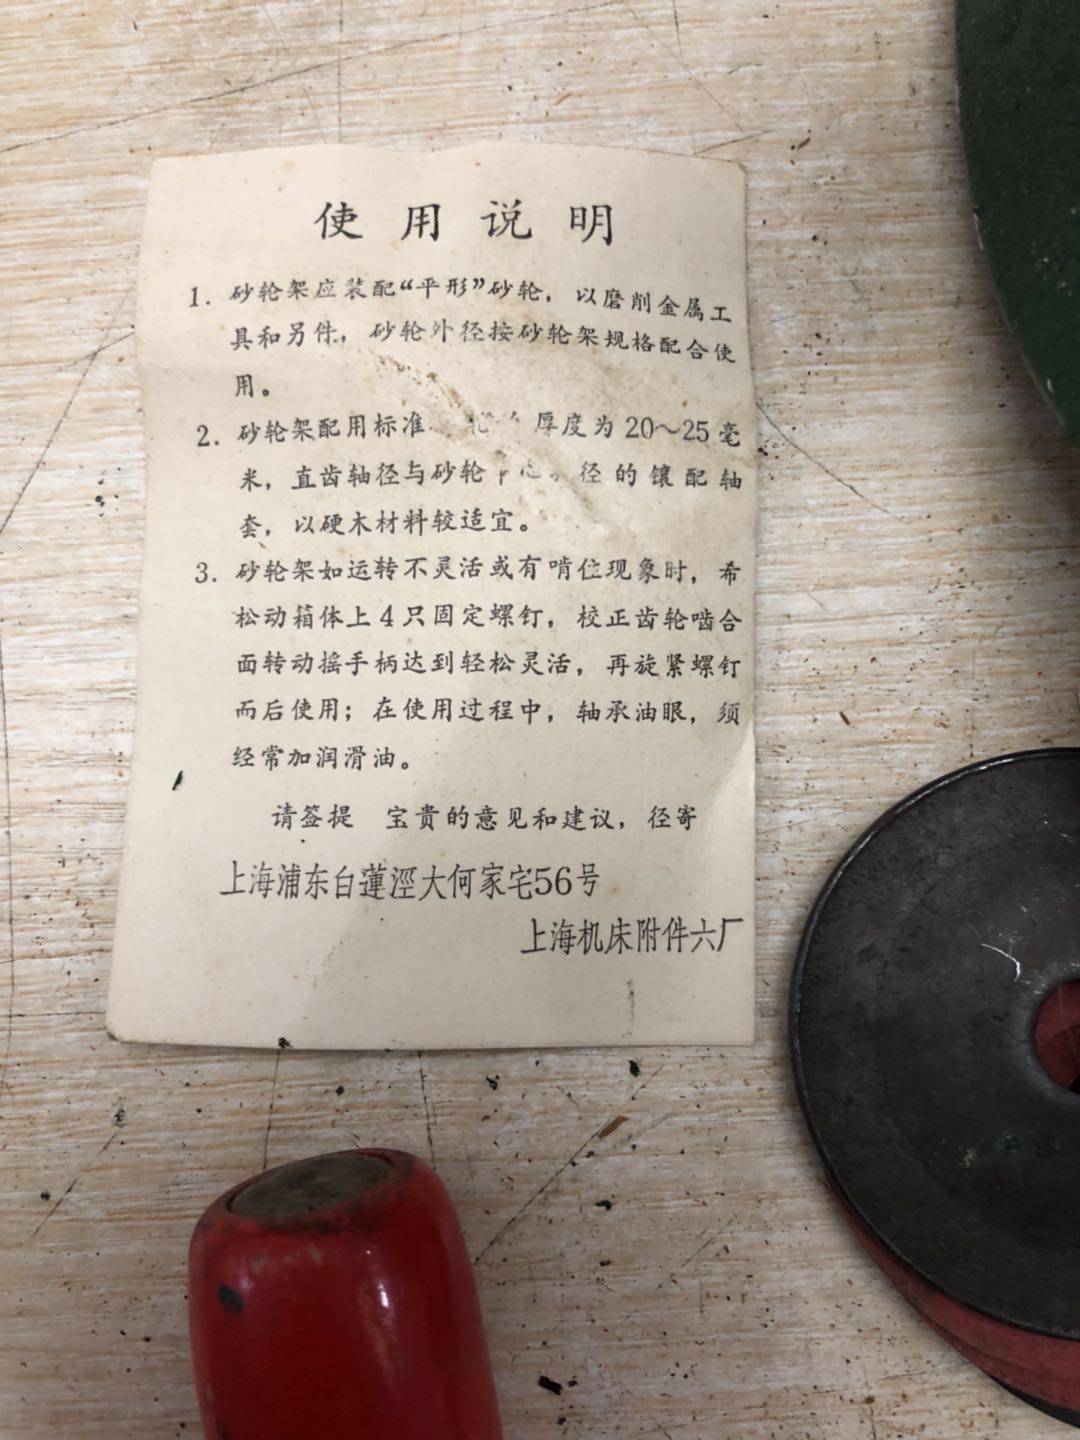 使用说明
1. 砂轮架应装配“平形”砂轮，以磨削金属工
具和另件，砂轮外径按砂轮架规格配合使
用。
2. 砂轮架配用标准 厚度为20～25毫
米，直齿轴径与砂轮 径的镶配轴
套，以硬木材料较适宜。
3. 砂轮架如运转不灵活或有啃位现象时，希
松动箱体上4只固定螺钉，校正齿轮啮合
面转动摇手柄达到轻松灵活，再旋紧螺钉
而后使用；在使用过程中，轴承油眼，须
经常加润滑油。
请签提 宝贵的意见和建议，径寄
上海浦东白蓮涇大何家宅56号
上海机床附件六厂